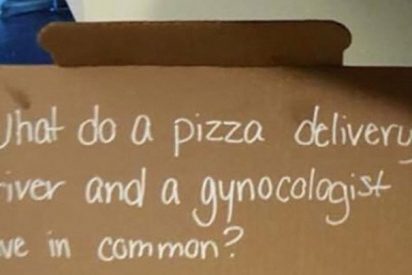 What do a pizza delivery
river and a gynocologist
ve in common?